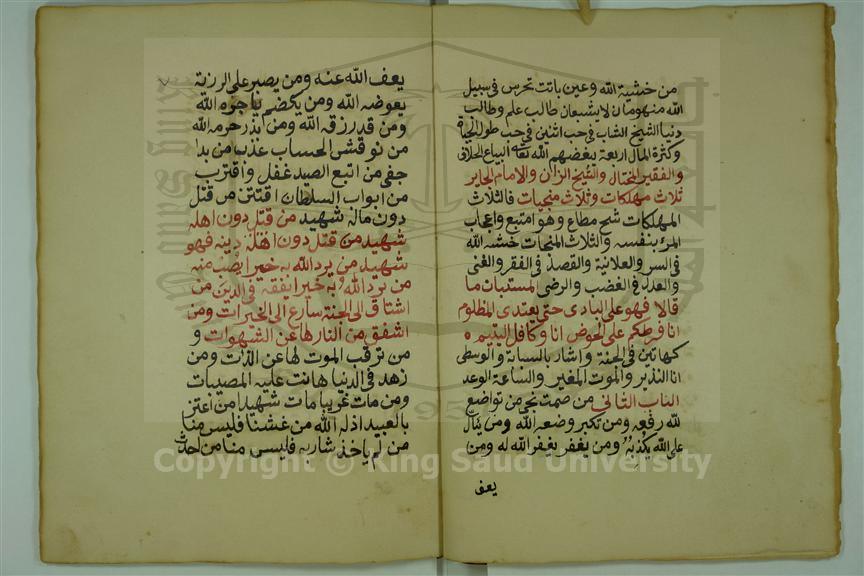 من خشية الله وعين باتت تحرس في سبيل
الله منهومان لا يشبعان طالب علم وطالب
دنيا الشيخ الشاب في حب اثنين في حب طول الحياة
وكثرة المال اربعة يبغضهم الله تعالى البياع الحلاف
والفقير المختال والشيخ الزان والامام الجاير
ثلاث مهلكات وثلاث منجيات فالثلاث
المهلكات شح مطاع وهوا متبع واعجاب
المرء بنفسه والثلاث المنجات خشية الله
في السر والعلانية والقصد في الفقر والغنى
والعدل في الغضب والرضى المستبات ما
قالا فهو على البادي حتى يعتدي المظلوم
انا فرطكم على الحوض انا وكافل اليتيم
كهاتين في الجنة واشار بالسبابة والوسطى
انا النذير والموت المغير والساعة الوعد
الباب الثاني من صمت نجى من تواضع
لله رفعه ومن تكبر وضعه الله ومن يتأل
على الله يكذبه ومن يغفر يغفر الله له ومن
يعف
يعف الله عنه ومن يصبر على الرزية
يعوضه الله ومن يكضم ياجره الله
ومن قدر رزقه الله ومن ابذر حرمه الله
من نوقش الحساب عذب من بدا
جفى من اتبع الصيد غفل واقترب
من ابواب السلطان افتتن من قتل
دون ماله شهيد من قتل دون اهله
شهيد من قتل دون دينه فهو
شهيد من يرد الله به خيرا يصب منه
من يرد الله به خيرا يفقه في الدين من
اشتاق الى الجنة سارع الى الخيرات ومن
اشفق من النار لها عن الشهوات و
من ترقب الموت لها عن الذات ومن
زهد في الدنيا هانت عليه المصيبات
ومن مات غريبا مات شهيدا من اعتز
بالعبيد اذله الله من غشنا فليس منا
من لم ياخذ شاربه فليس منا من احدث
Copyright © King Saud University